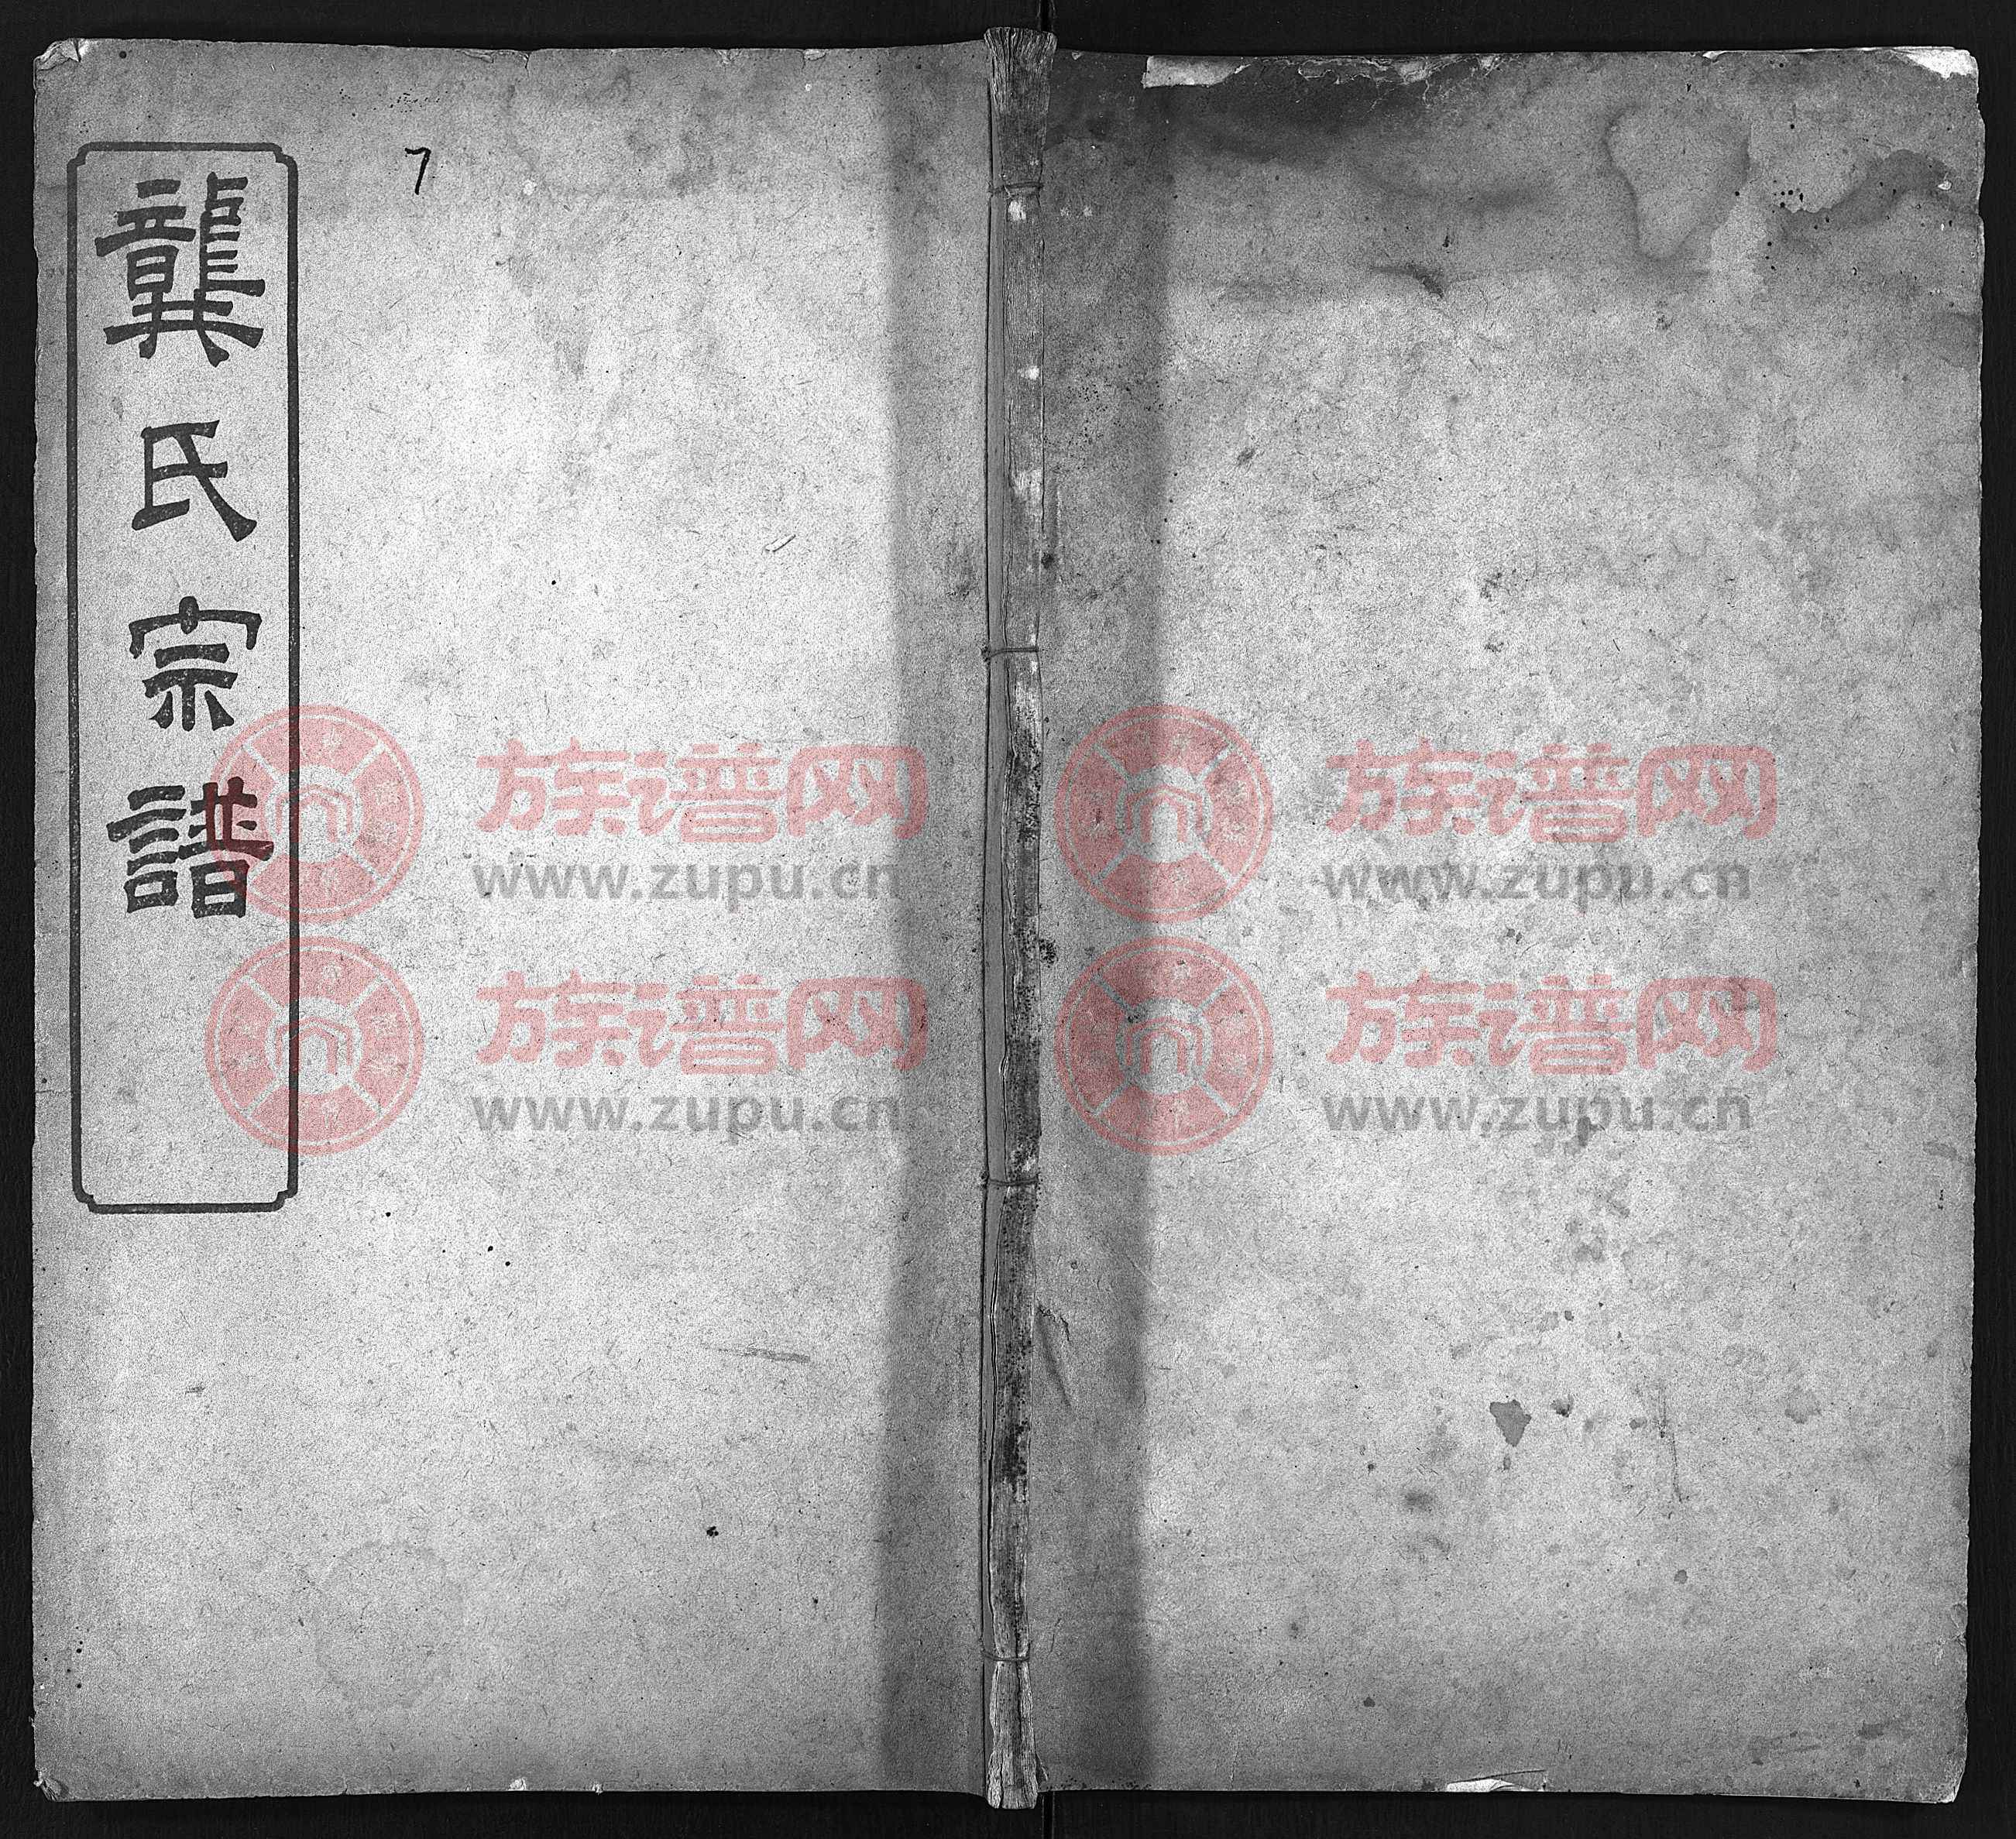 龔氏宗譜
7
族谱网
www.zupu.cn
族谱网
www.zupu.cn
族谱网
www.zupu.cn
族谱网
www.zupu.cn